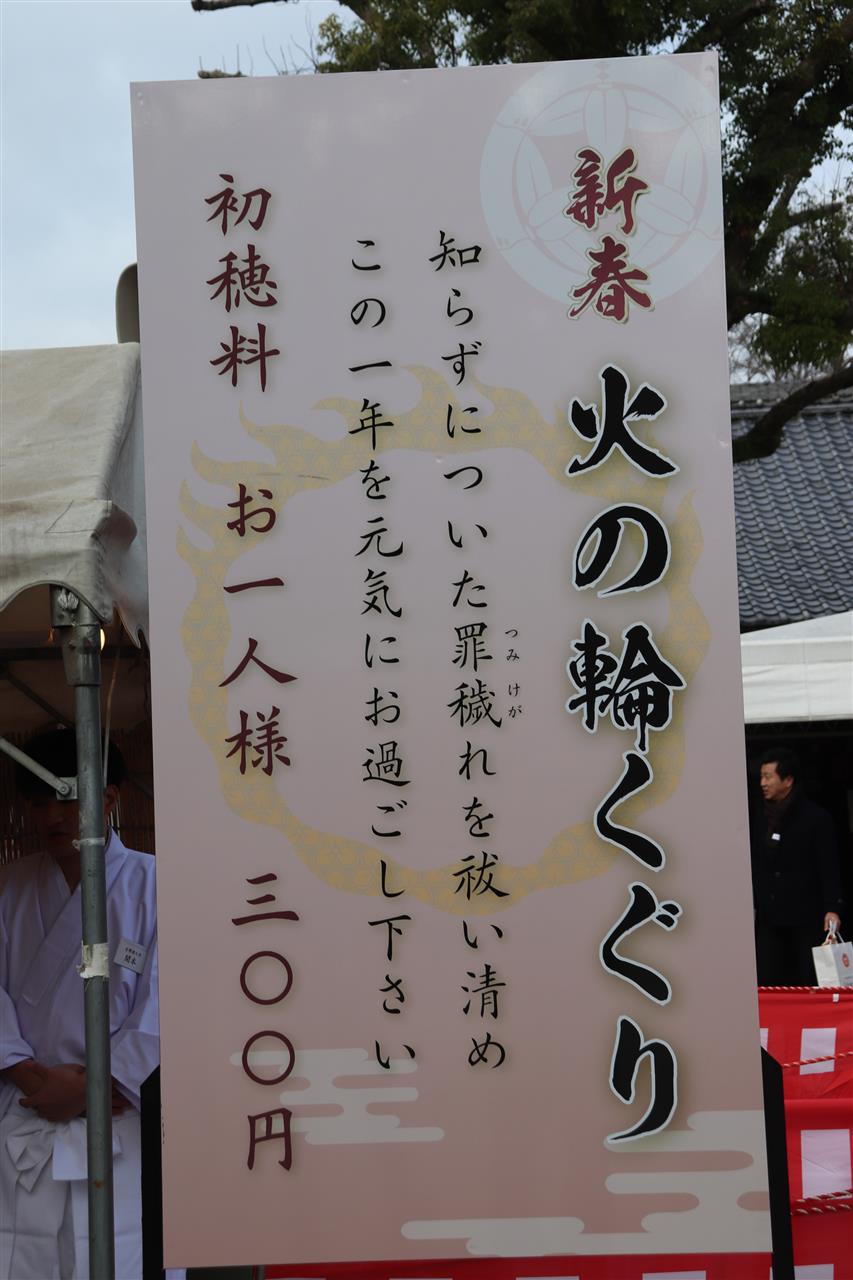 新春 火の輪くぐり
知らずについた罪穢れを祓い清め
つみ けが
この一年を元気にお過ごし下さい
初穂料 お一人様 三〇〇円